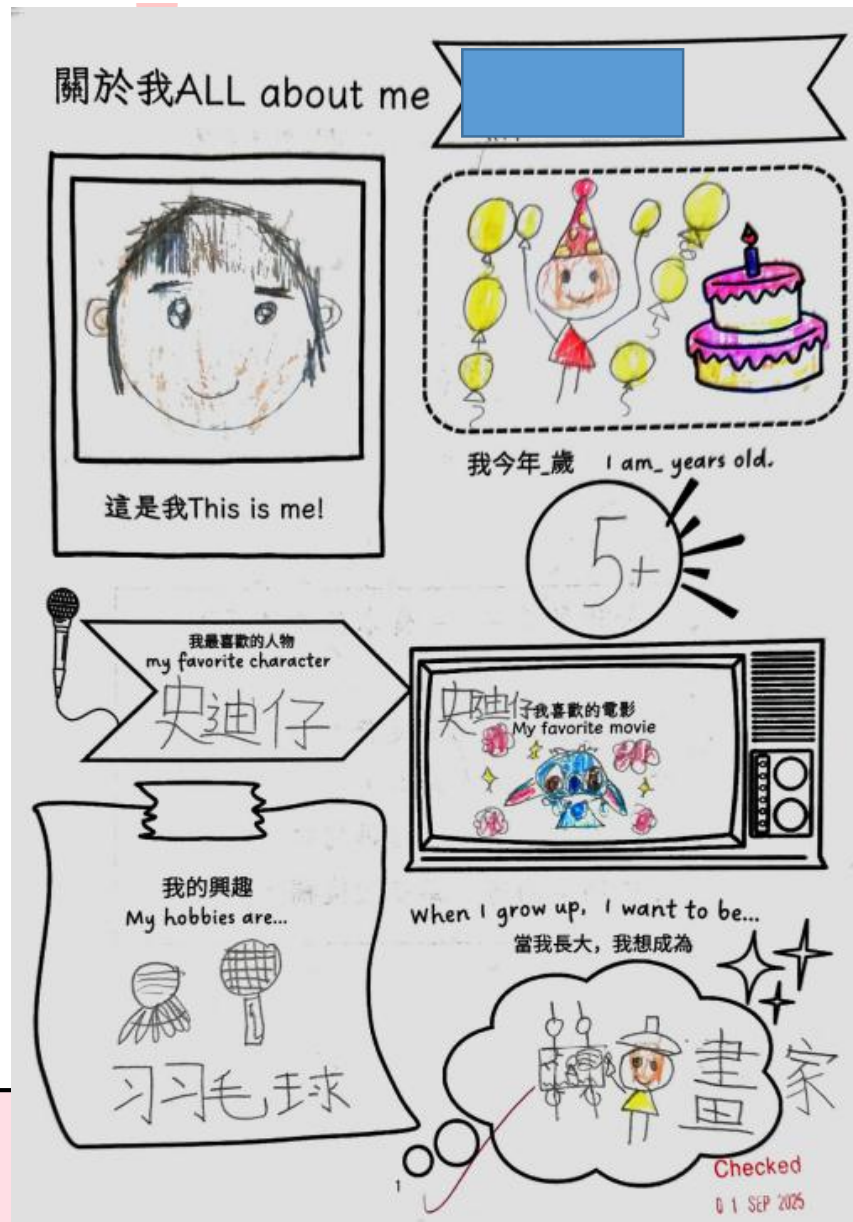 關於我ALL about me
這是我This is me!
我今年_歲 I am_ years old.
5+
我最喜歡的人物
my favorite character
史迪仔
史迪仔
我喜歡的電影
My favorite movie
我的興趣
My hobbies are...
羽毛球
When I grow up, I want to be...
當我長大，我想成為
畫家
1
Checked
01 SEP 2025